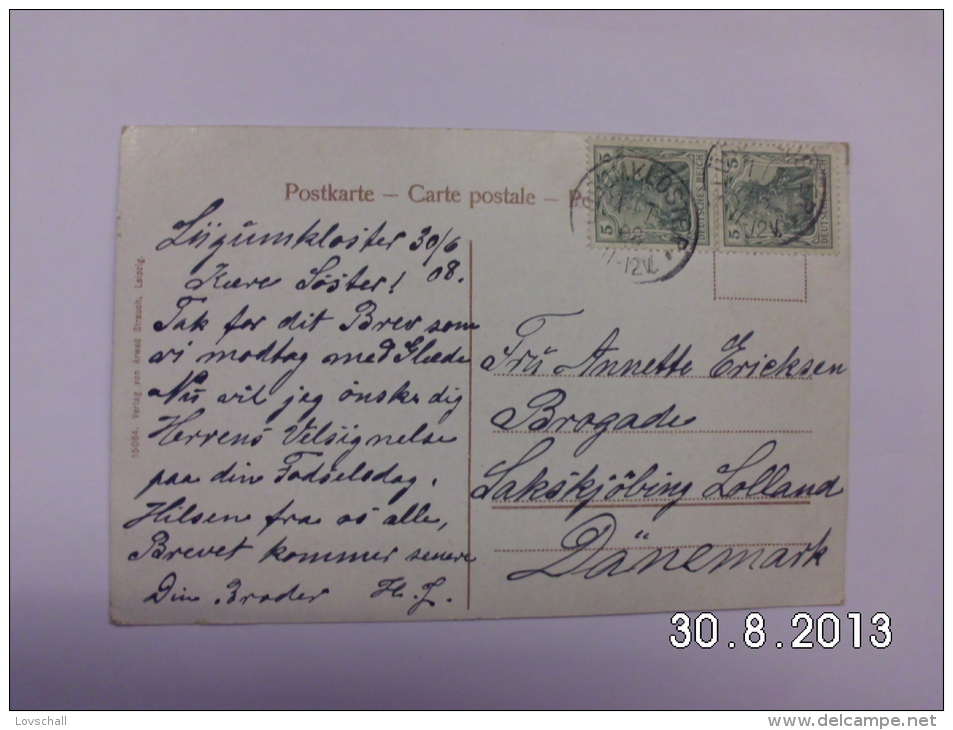 Postkarte – Carte postale –
Lügumkloster 30/6
08.
Kære Søster!
Tak for dit Brev som
vi modtog med Glæde
Nu vil jeg ønske dig
Herrens Velsignelse
paa din Fødselsdag.
Hilsen fra os alle,
Brevet kommer senere
Din Broder H. J.
Frü Annette Ericksen
Brogade
Sakskjöbing Lolland
Dänemark
15084. Verlag von Arwed Strauch, Leipzig.
5 5
DEUTSCHES REICH
5 5
DEUTSCHES REICH
11-12V.
12V.
30.8.2013
Lovschall
www.delcampe.net